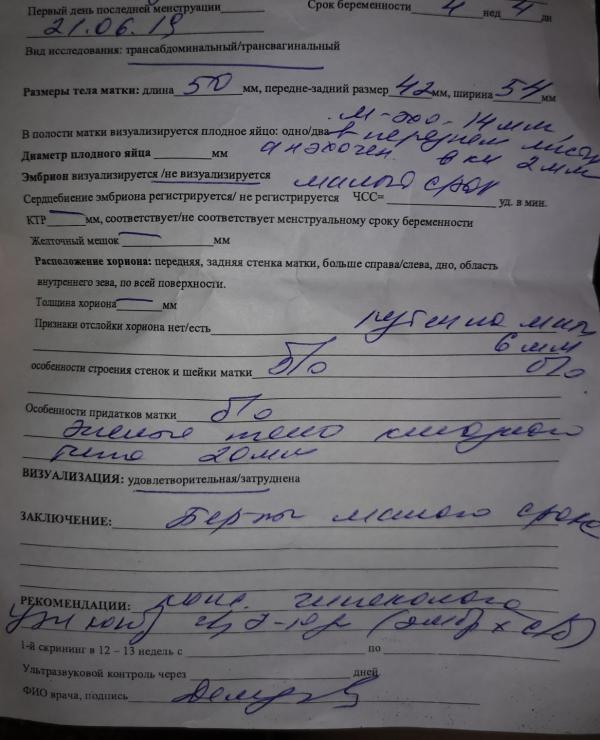 Первый день последней менструации Срок беременности 4 нед 4 дн
21.06.19
Вид исследования: трансабдоминальный/трансвагинальный
Размеры тела матки: длина 50 мм, передне-задний размер 42 мм, ширина 54 мм
М-эхо - 14 мм,
В полости матки визуализируется плодное яйцо: одно/два в переднем
Диаметр плодного яйца мм анэхоген. вкл 2 мм
Эмбрион визуализируется /не визуализируется малого срок
Сердцебиение эмбриона регистрируется/ не регистрируется ЧСС= уд. в мин.
КТР мм, соответствует/не соответствует менструальному сроку беременности
Желточный мешок мм
Расположение хориона: передняя, задняя стенка матки, больше справа/слева, дно, область
внутреннего зева, по всей поверхности.
Толщина хориона мм
Признаки отслойки хориона нет/есть
6 мм
особенности строения стенок и шейки матки б/о б/о
Особенности придатков матки б/о
Желтое тело кистозного
типа 20 мм
ВИЗУАЛИЗАЦИЯ: удовлетворительная/затруднена
ЗАКЛЮЧЕНИЕ: малого срока
РЕКОМЕНДАЦИИ: конс. гинеколога
1-й скрининг в 12 – 13 недель с по
Ультразвуковой контроль через дней
ФИО врача, подпись